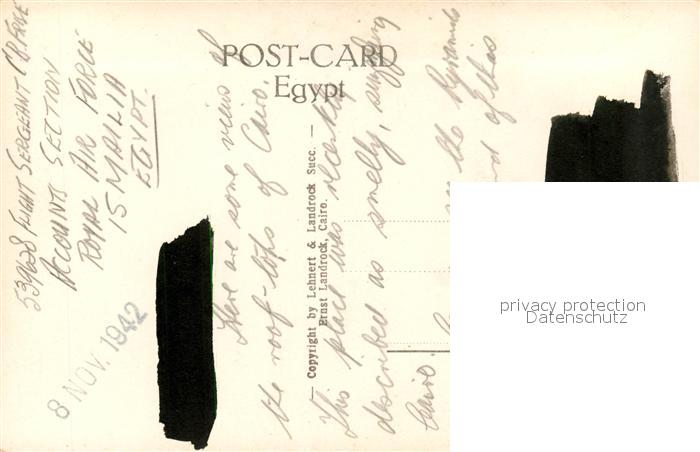 POST-CARD
Egypt
539638 FLIGHT SERGEANT
ACCOUNTS SECTION
ROYAL AIR FORCE
ISMAILIA
EGYPT.
8 NOV. 1942
Here are some views of
the roof-tops of Cairo.
This place was recently
described as smelly, snuffling
Cairo.
the Pyramids
of this
— Copyright by Lehnert & Landrock Succ. —
Ernst Landrock, Cairo.
privacy protection
Datenschutz